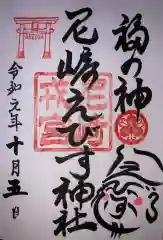 福の神
尼崎えびす神社
令和元年十月五日